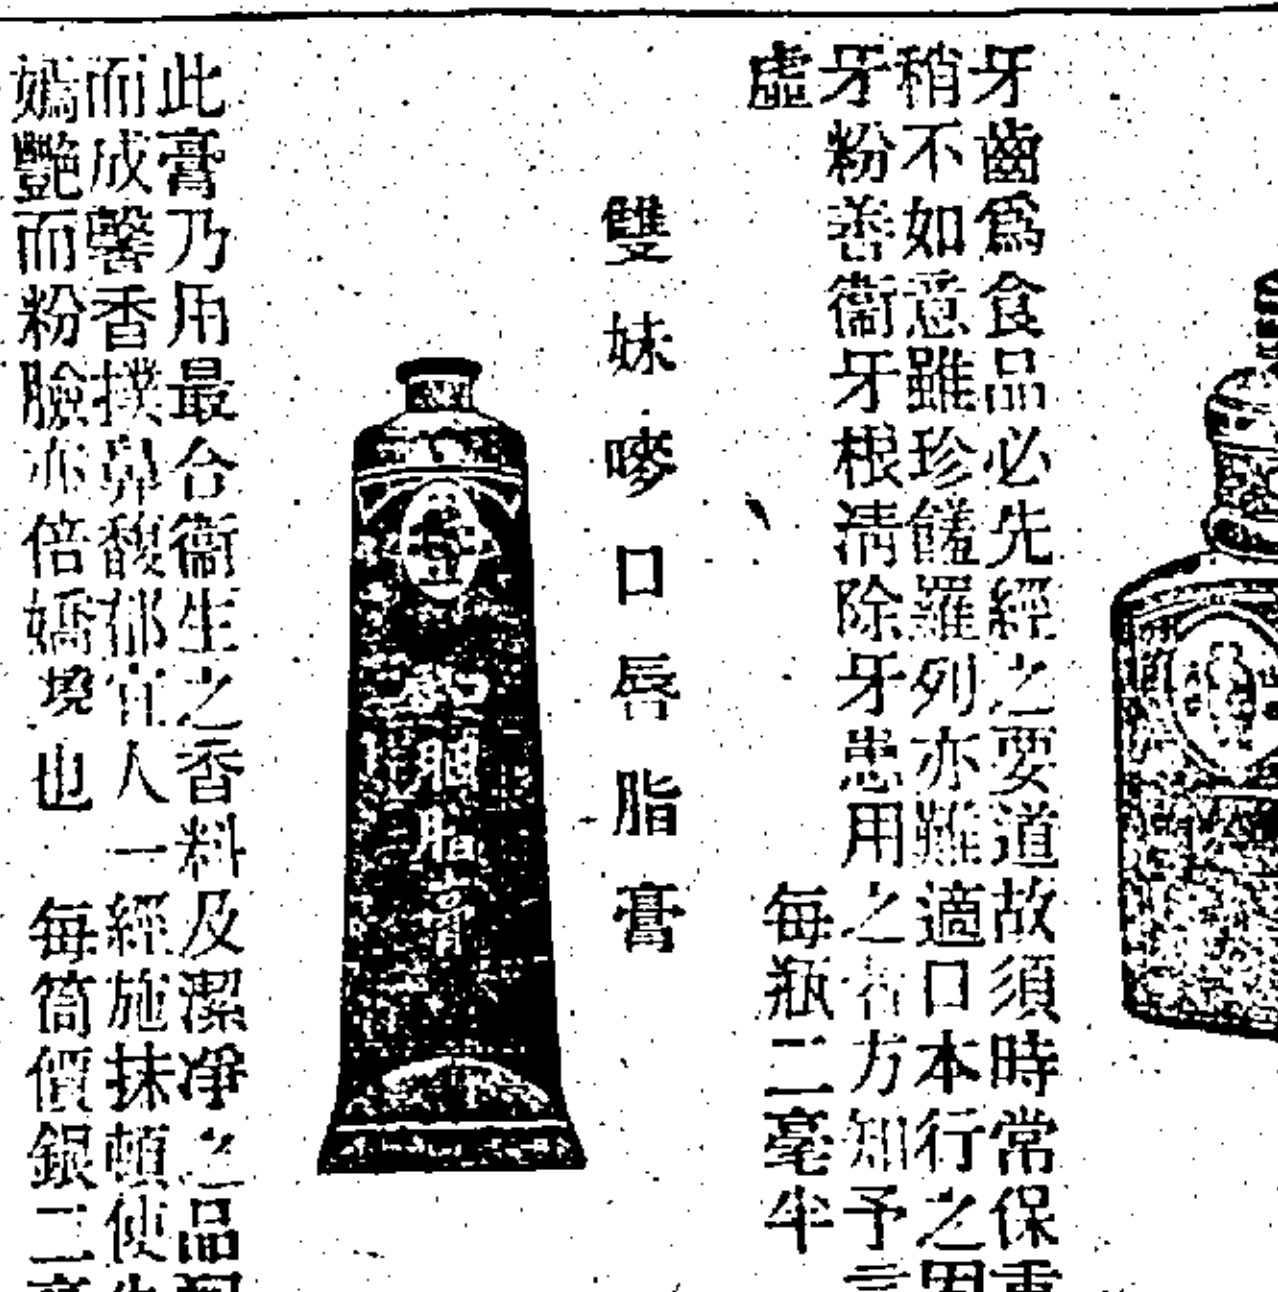 牙齒爲食品必先經之要道故須時常保重
稍不如意雖珍饈羅列亦難適口本行之固
牙粉善衞牙根清除牙患用之者方知予言
虛
每瓶二毫半
雙妹嘜口唇脂膏
胭脂膏
此膏乃用最合衞生之香料及潔凈之品
而成馨香撲鼻馥郁宜人一經施抹頓使
嫣艷而粉臉亦倍嬌境也
每筒價銀二毫